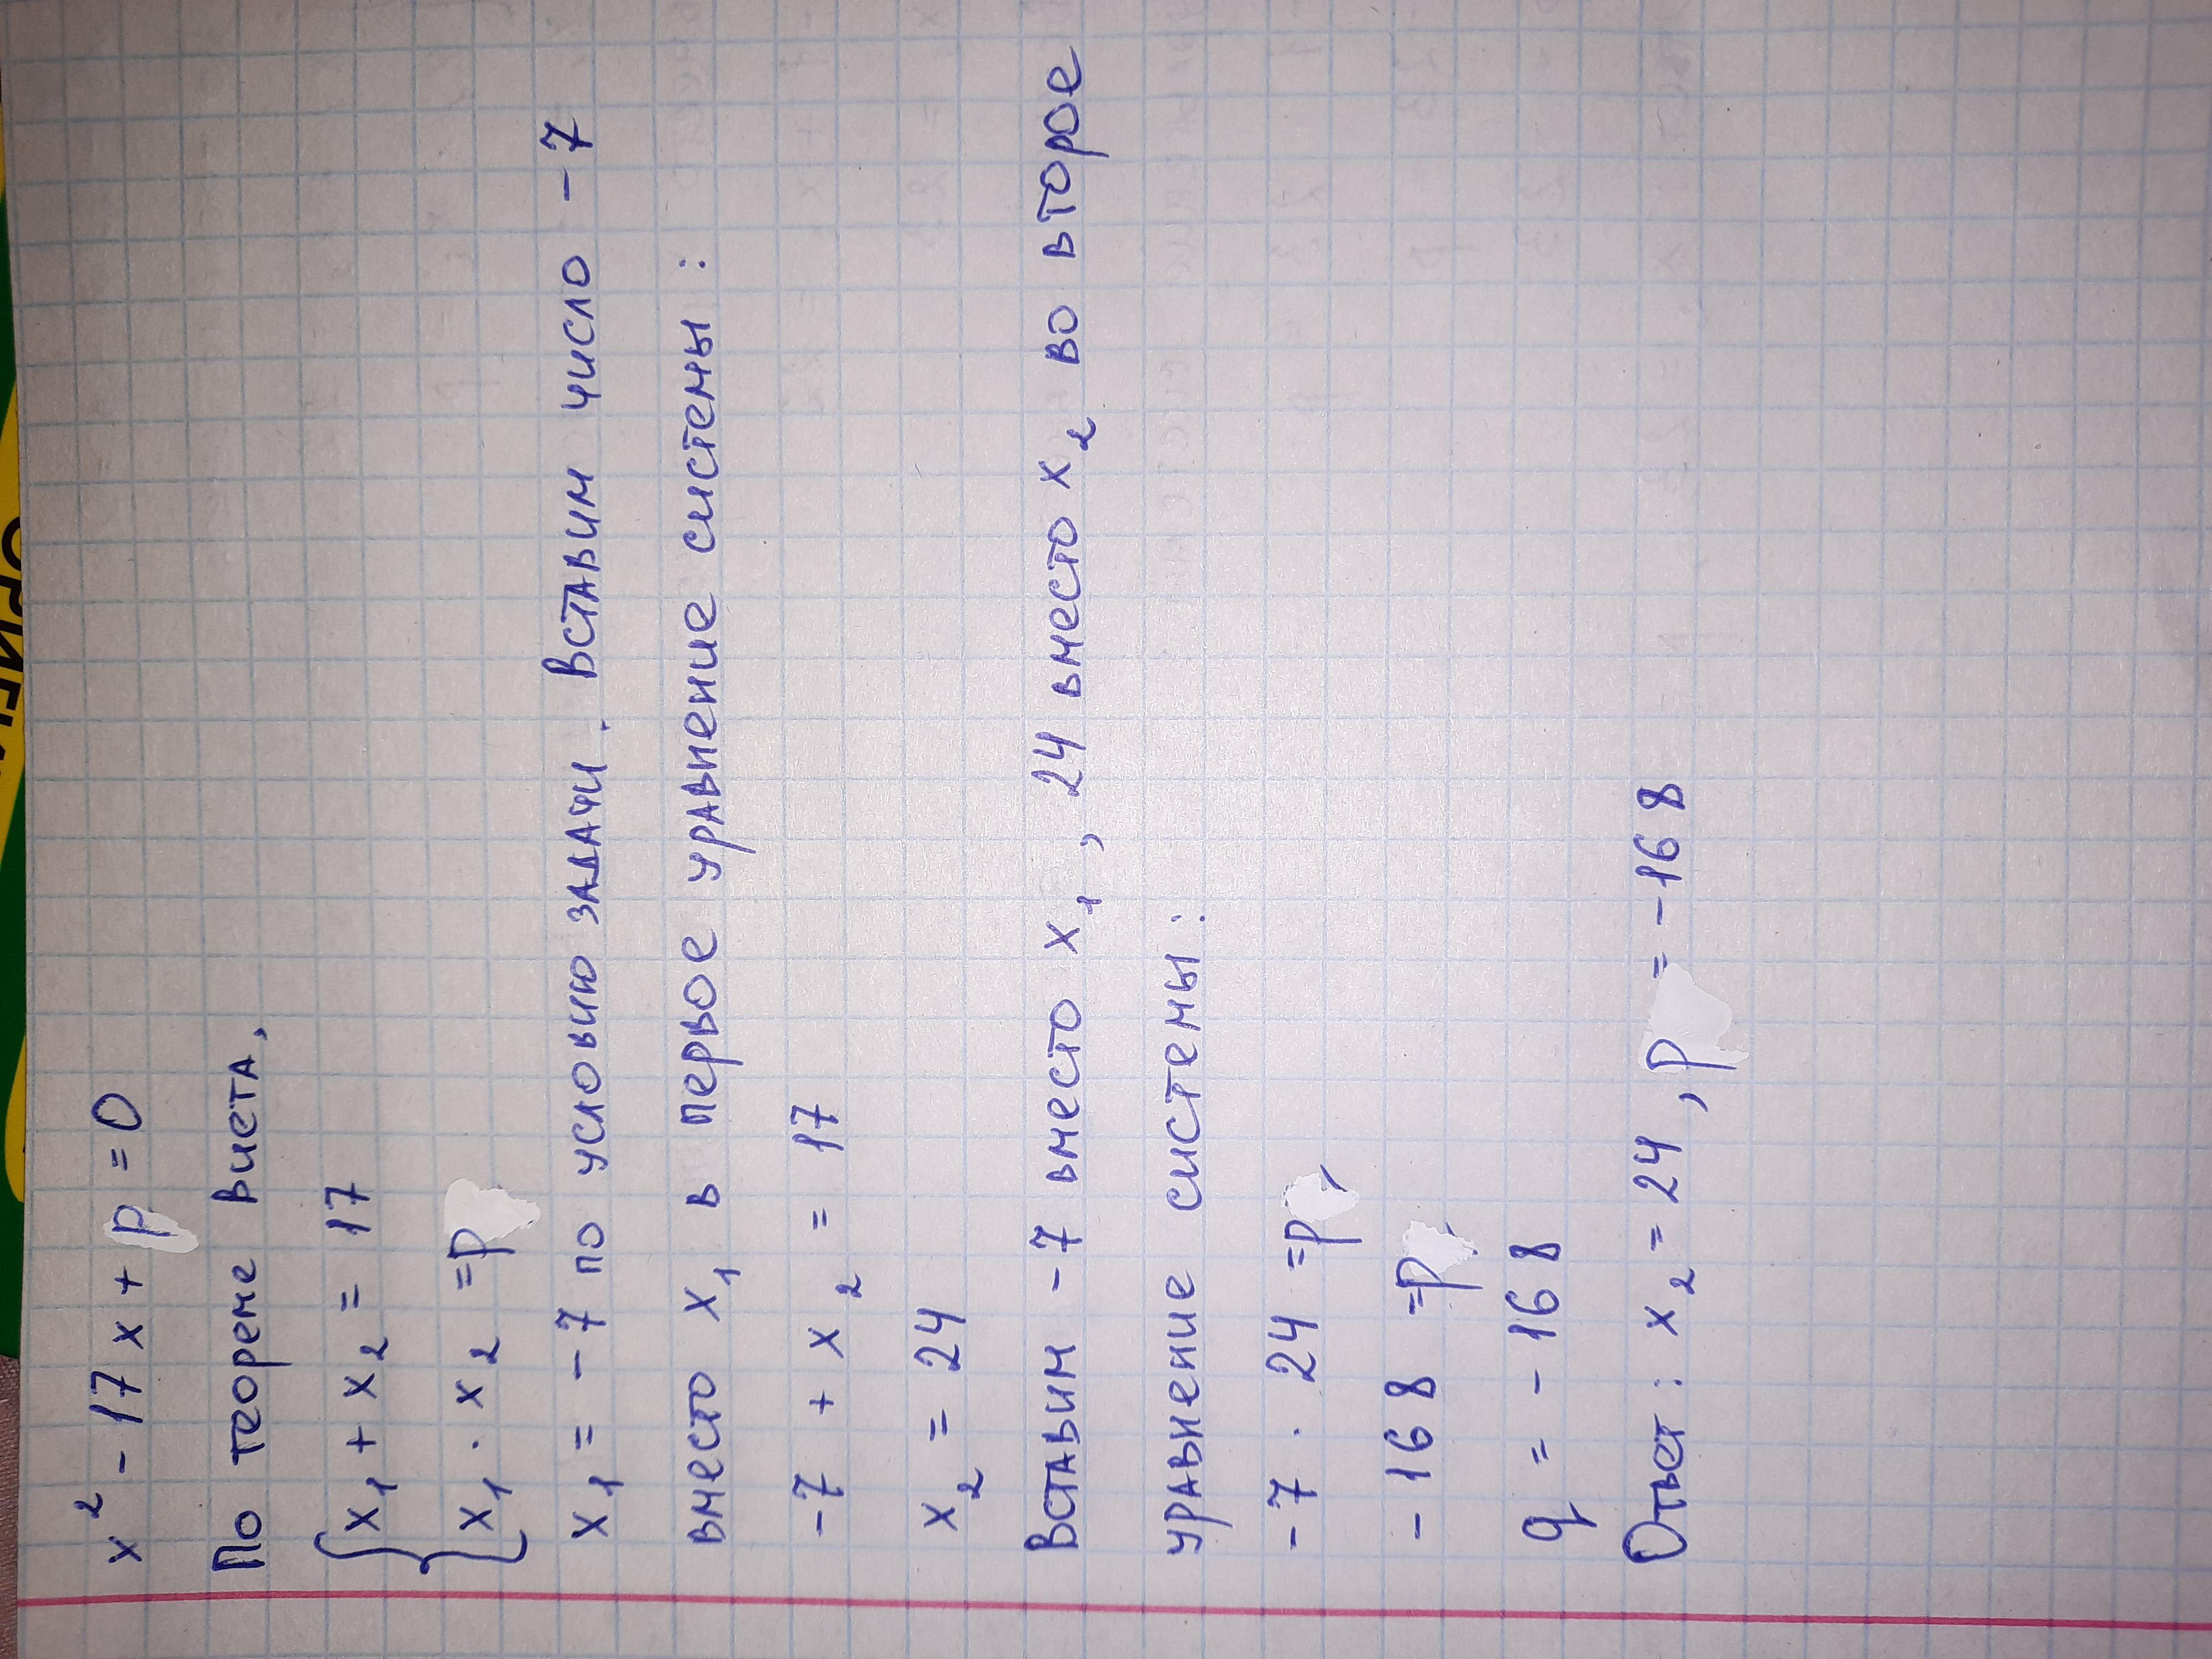 x² - 17x + p = 0
По теореме Виета,
x₁ + x₂ = 17
x₁ · x₂ = p
x₁ = -7 по условию задачи. Вставим число -7
вместо x₁ в первое уравнение системы:
-7 + x₂ = 17
x₂ = 24
Вставим -7 вместо x₁, 24 вместо x₂ во второе
уравнение системы:
-7 · 24 = p
-168 = p
q = -168
Ответ: x₂ = 24, p = -168